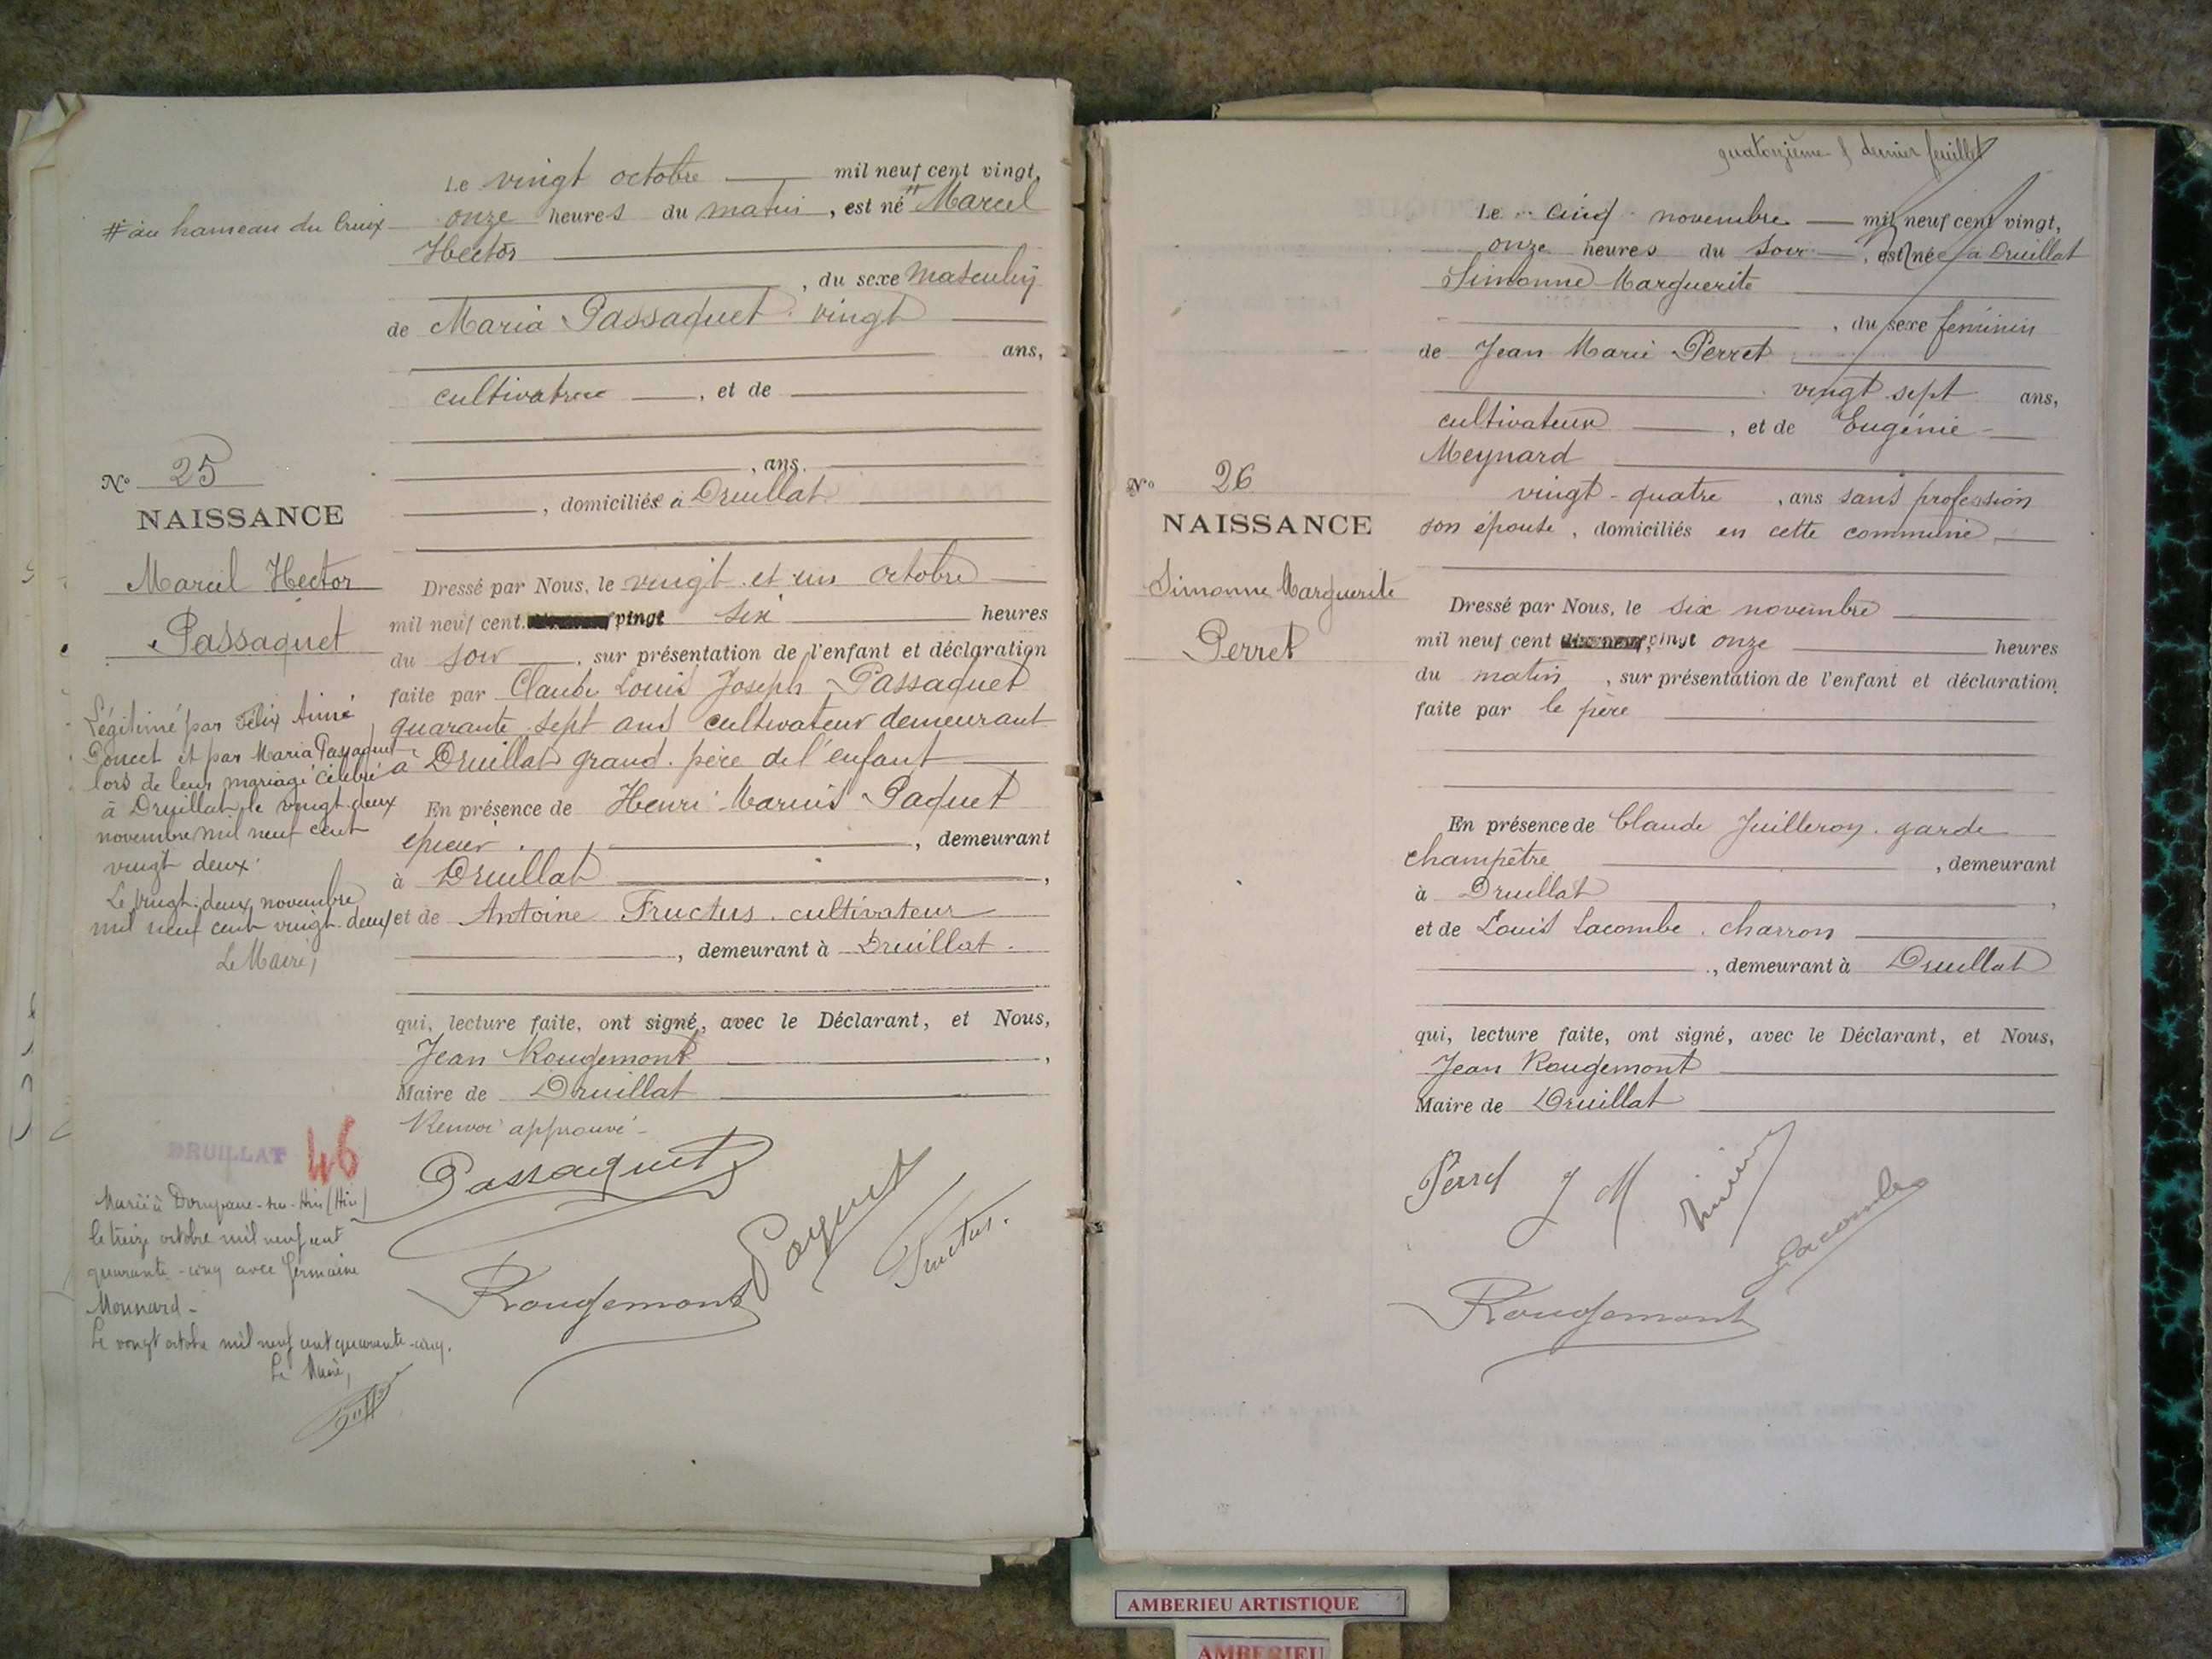 Le vingt octobre mil neuf cent vingt,
# au hameau du Creux
onze heures du matin, est né # Marcel
Hector
, du sexe masculin
de Maria Passaquet vingt
ans,
cultivatrice, et de
, ans
, domiciliés à Druillat
N° 25
NAISSANCE
Marcel Hector
Passaquet
Dressé par Nous, le vingt et un octobre
mil neuf cent vingt six heures
du soir, sur présentation de l'enfant et déclaration
faite par Claude Louis Joseph Passaquet
quarante sept ans cultivateur demeurant
à Druillat grand-père de l'enfant
En présence de Henri Marius Paquet
épicier, demeurant
à Druillat,
et de Antoine Fructus, cultivateur
, demeurant à Druillat.
qui, lecture faite, ont signé, avec le Déclarant, et Nous,
Jean Rougemont,
Maire de Druillat
Renvoi approuvé
Passaquet
Paquet
Fructus.
Rougemont
Légitimé par Félix Aimé
Poncet et par Maria Passaquet
lors de leur mariage célébré
à Druillat le vingt-deux
novembre mil neuf cent
vingt deux.
Le vingt-deux novembre
mil neuf cent vingt-deux
Le Maire,
DRUILLAT 46
Marié à
le treize octobre mil neuf cent
quarante-cinq avec Germaine
Monnard -
Le vingt octobre mil neuf cent quarante-cinq.
Le Maire,
quatorzième & dernier feuillet
Le cinq novembre mil neuf cent vingt,
onze heures du soir, est née à Druillat
Simonne Marguerite
, du sexe féminin
de Jean Marie Perret
vingt sept ans,
cultivateur, et de Eugénie
Meynard
vingt-quatre, ans sans profession
son épouse, domiciliés en cette commune
N° 26
NAISSANCE
Simonne Marguerite
Perret
Dressé par Nous, le six novembre
mil neuf cent vingt onze heures
du matin, sur présentation de l'enfant et déclaration
faite par le père
En présence de Claude Juilleron, garde
champêtre, demeurant
à Druillat,
et de Louis Lacombe, charron
, demeurant à Druillat
qui, lecture faite, ont signé, avec le Déclarant, et Nous,
Jean Rougemont
Maire de Druillat
Perret J M
Lacombe
Rougemont
AMBERIEU ARTISTIQUE
AMBERIEU